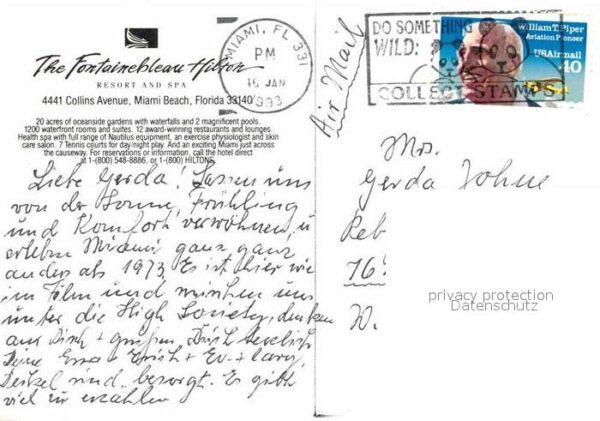 The Fontainebleau Hilton
RESORT AND SPA
4441 Collins Avenue, Miami Beach, Florida 33140
20 acres of oceanside gardens with waterfalls and 2 magnificent pools.
1200 waterfront rooms and suites. 12 award-winning restaurants and lounges.
Health spa with full range of Nautilus equipment, an exercise physiologist and skin
care salon. 7 Tennis courts for day/night play. And an exciting Miami just across
the causeway. For reservations or information, call the hotel direct
at 1-(800) 548-8886, or 1-(800) HILTONS
Liebe Gerda! Lassen uns
von der Sonne, Frühling
und Komfort verwöhnen, u
erleben Miami ganz ganz
anders als 1973. Es ist hier wie
im Film und mischen uns
unter die High Society, denken
an Dich + grüßen Dich herzlich
Deine Erna + Erich + Ev. +
sind besorgt. Es gibt
viel zu erzählen
MIAMI, FL 331
PM
16 JAN
1993
Air Mail
DO SOMETHING
WILD:
COLLECT STAMPS
William T. Piper
Aviation Pioneer
USAirmail
40
Mrs.
Gerda
Reb
76
W.
privacy protection
Datenschutz